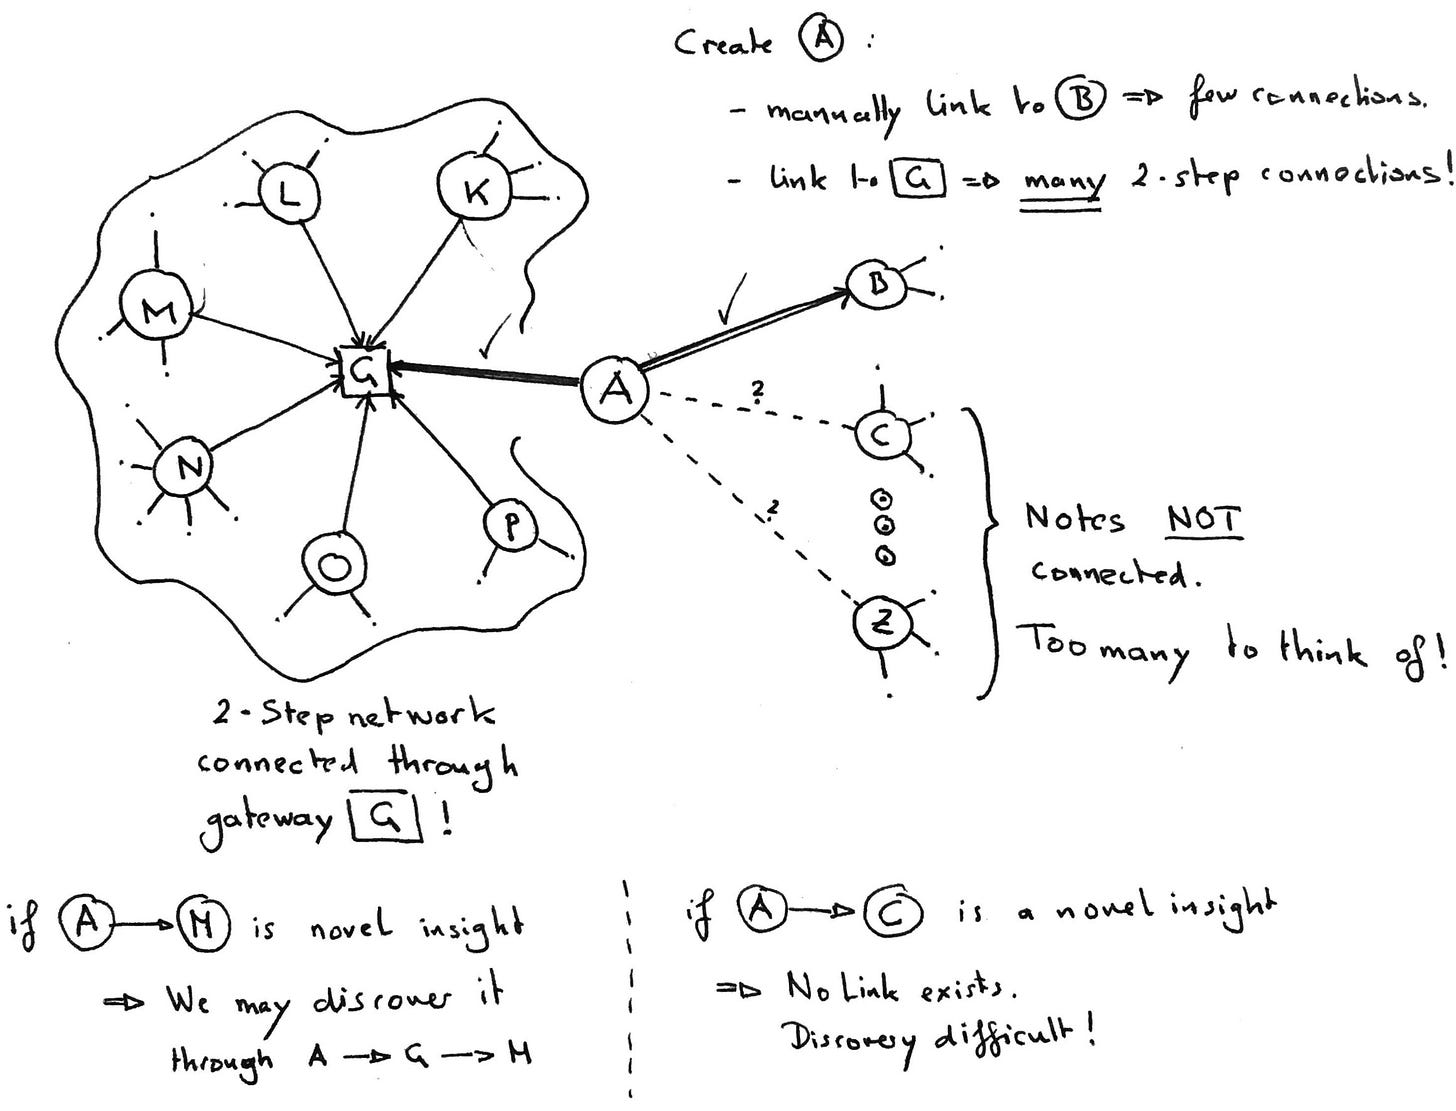 Create A :
- manually link to B => few connections.
- link to G => many 2-step connections!
L
K
M
B
G
A
?
C
N
?
P
O
Z
Notes NOT
connected.
Too many to think of!
2-Step network
connected through
gateway G !
if A → M is novel insight
=> We may discover it
through A → G → M
if A → C is a novel insight
=> No Link exists.
Discovery difficult!